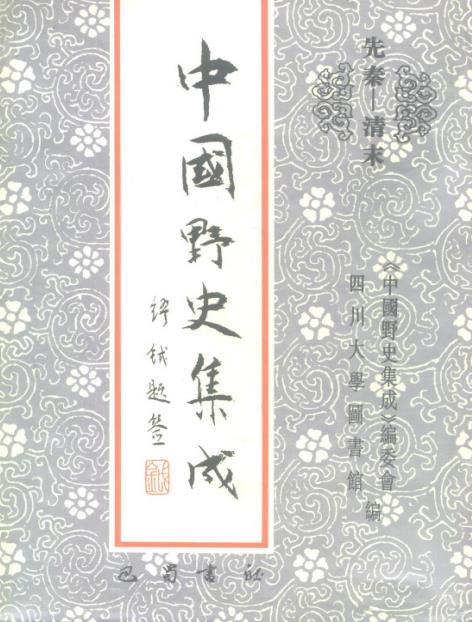 先秦—清末
《中國野史集成》編委會
四川大學圖書館
編
中國野史集成
繆鉞題簽
巴蜀書社